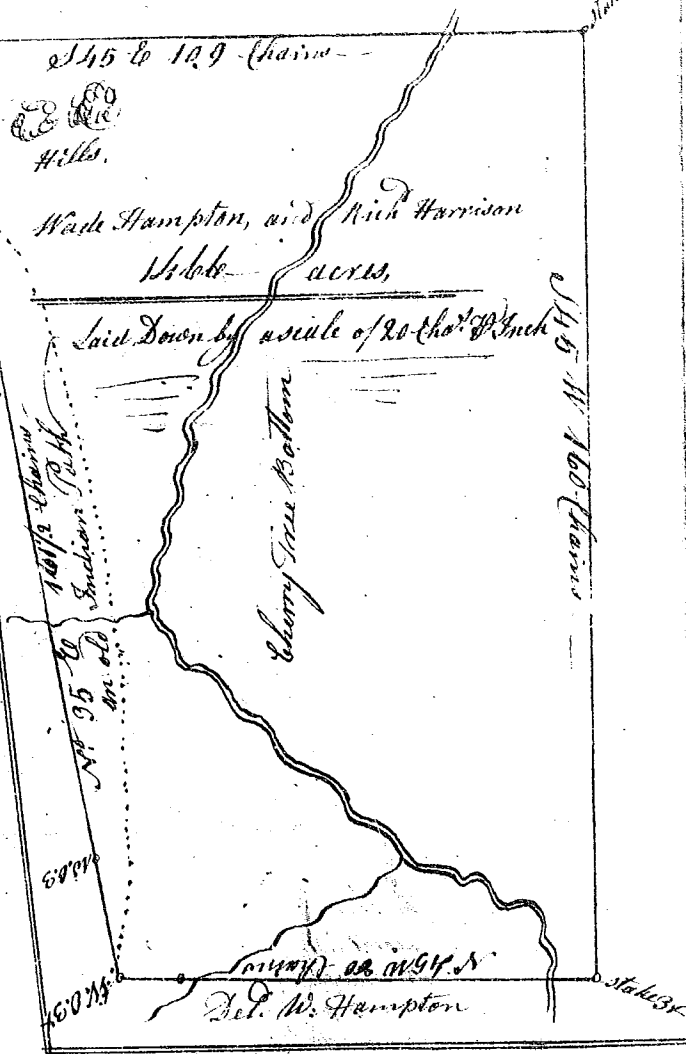 S 45 E 109 Chains
Hills.
Wade Hampton, and Richd Harrison
1466 acres,
Laid Down by a scale of 20 Chas. P Inch
S 45 W 160 Chains
Cherry Tree Bottom
No 35 E 161 1/2 Chains
an old Indian Path
W.O.3
W.O.3x
N 45 W 80 Chains
Del. W. Hampton
stake 3x